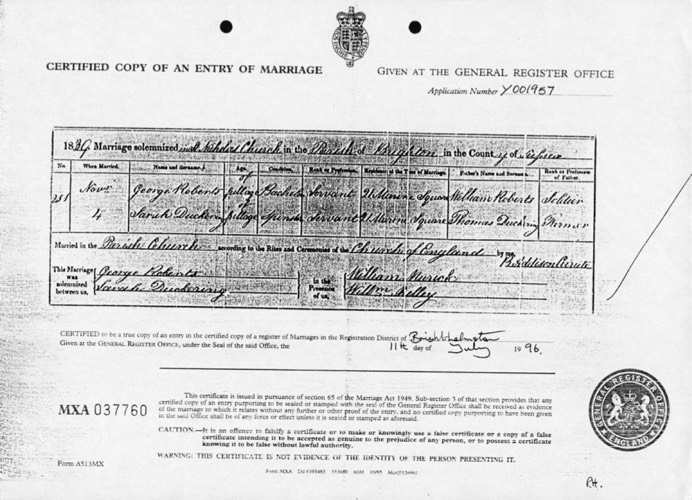 CERTIFIED COPY OF AN ENTRY OF MARRIAGE
GIVEN AT THE GENERAL REGISTER OFFICE
Application Number Y001957
1839. Marriage solemnized at St Nicholas Church in the Parish of Brighton in the County of Sussex
No. When Married. Name and Surname. Age. Condition. Rank or Profession. Residence at the Time of Marriage. Father's Name and Surname. Rank or Profession of Father.
251 Novr George Roberts of full age Bachelor Servant 21 Marine Square William Roberts Soldier
4 Sarah Duckering of full age Spinster Servant 21 Marine Square Thomas Duckering Farmer
Married in the Parish Church according to the Rites and Ceremonies of the Church of England by me,
Curate
This Marriage was solemnized between us,
George Roberts
Sarah Duckering
in the Presence of us,
William
Willm Kelley
CERTIFIED to be a true copy of an entry in the certified copy of a register of Marriages in the Registration District of Brighthelmston
Given at the GENERAL REGISTER OFFICE, under the Seal of the said Office, the 11th day of July 1996.
MXA 037760
This certificate is issued in pursuance of section 65 of the Marriage Act 1949. Sub-section 3 of that section provides that any
certified copy of an entry purporting to be sealed or stamped with the seal of the General Register Office shall be received as evidence
of the marriage to which it relates without any further or other proof of the entry, and no certified copy purporting to have been given
in the said Office shall be of any force or effect unless it is sealed or stamped as aforesaid.
CAUTION.—It is an offence to falsify a certificate or to make or knowingly use a false certificate or a copy of a false
certificate intending it to be accepted as genuine to the prejudice of any person, or to possess a certificate
knowing it to be false without lawful authority.
WARNING: THIS CERTIFICATE IS NOT EVIDENCE OF THE IDENTITY OF THE PERSON PRESENTING IT.
GENERAL REGISTER OFFICE
ENGLAND
Form A513MX
Form MXA
RH.